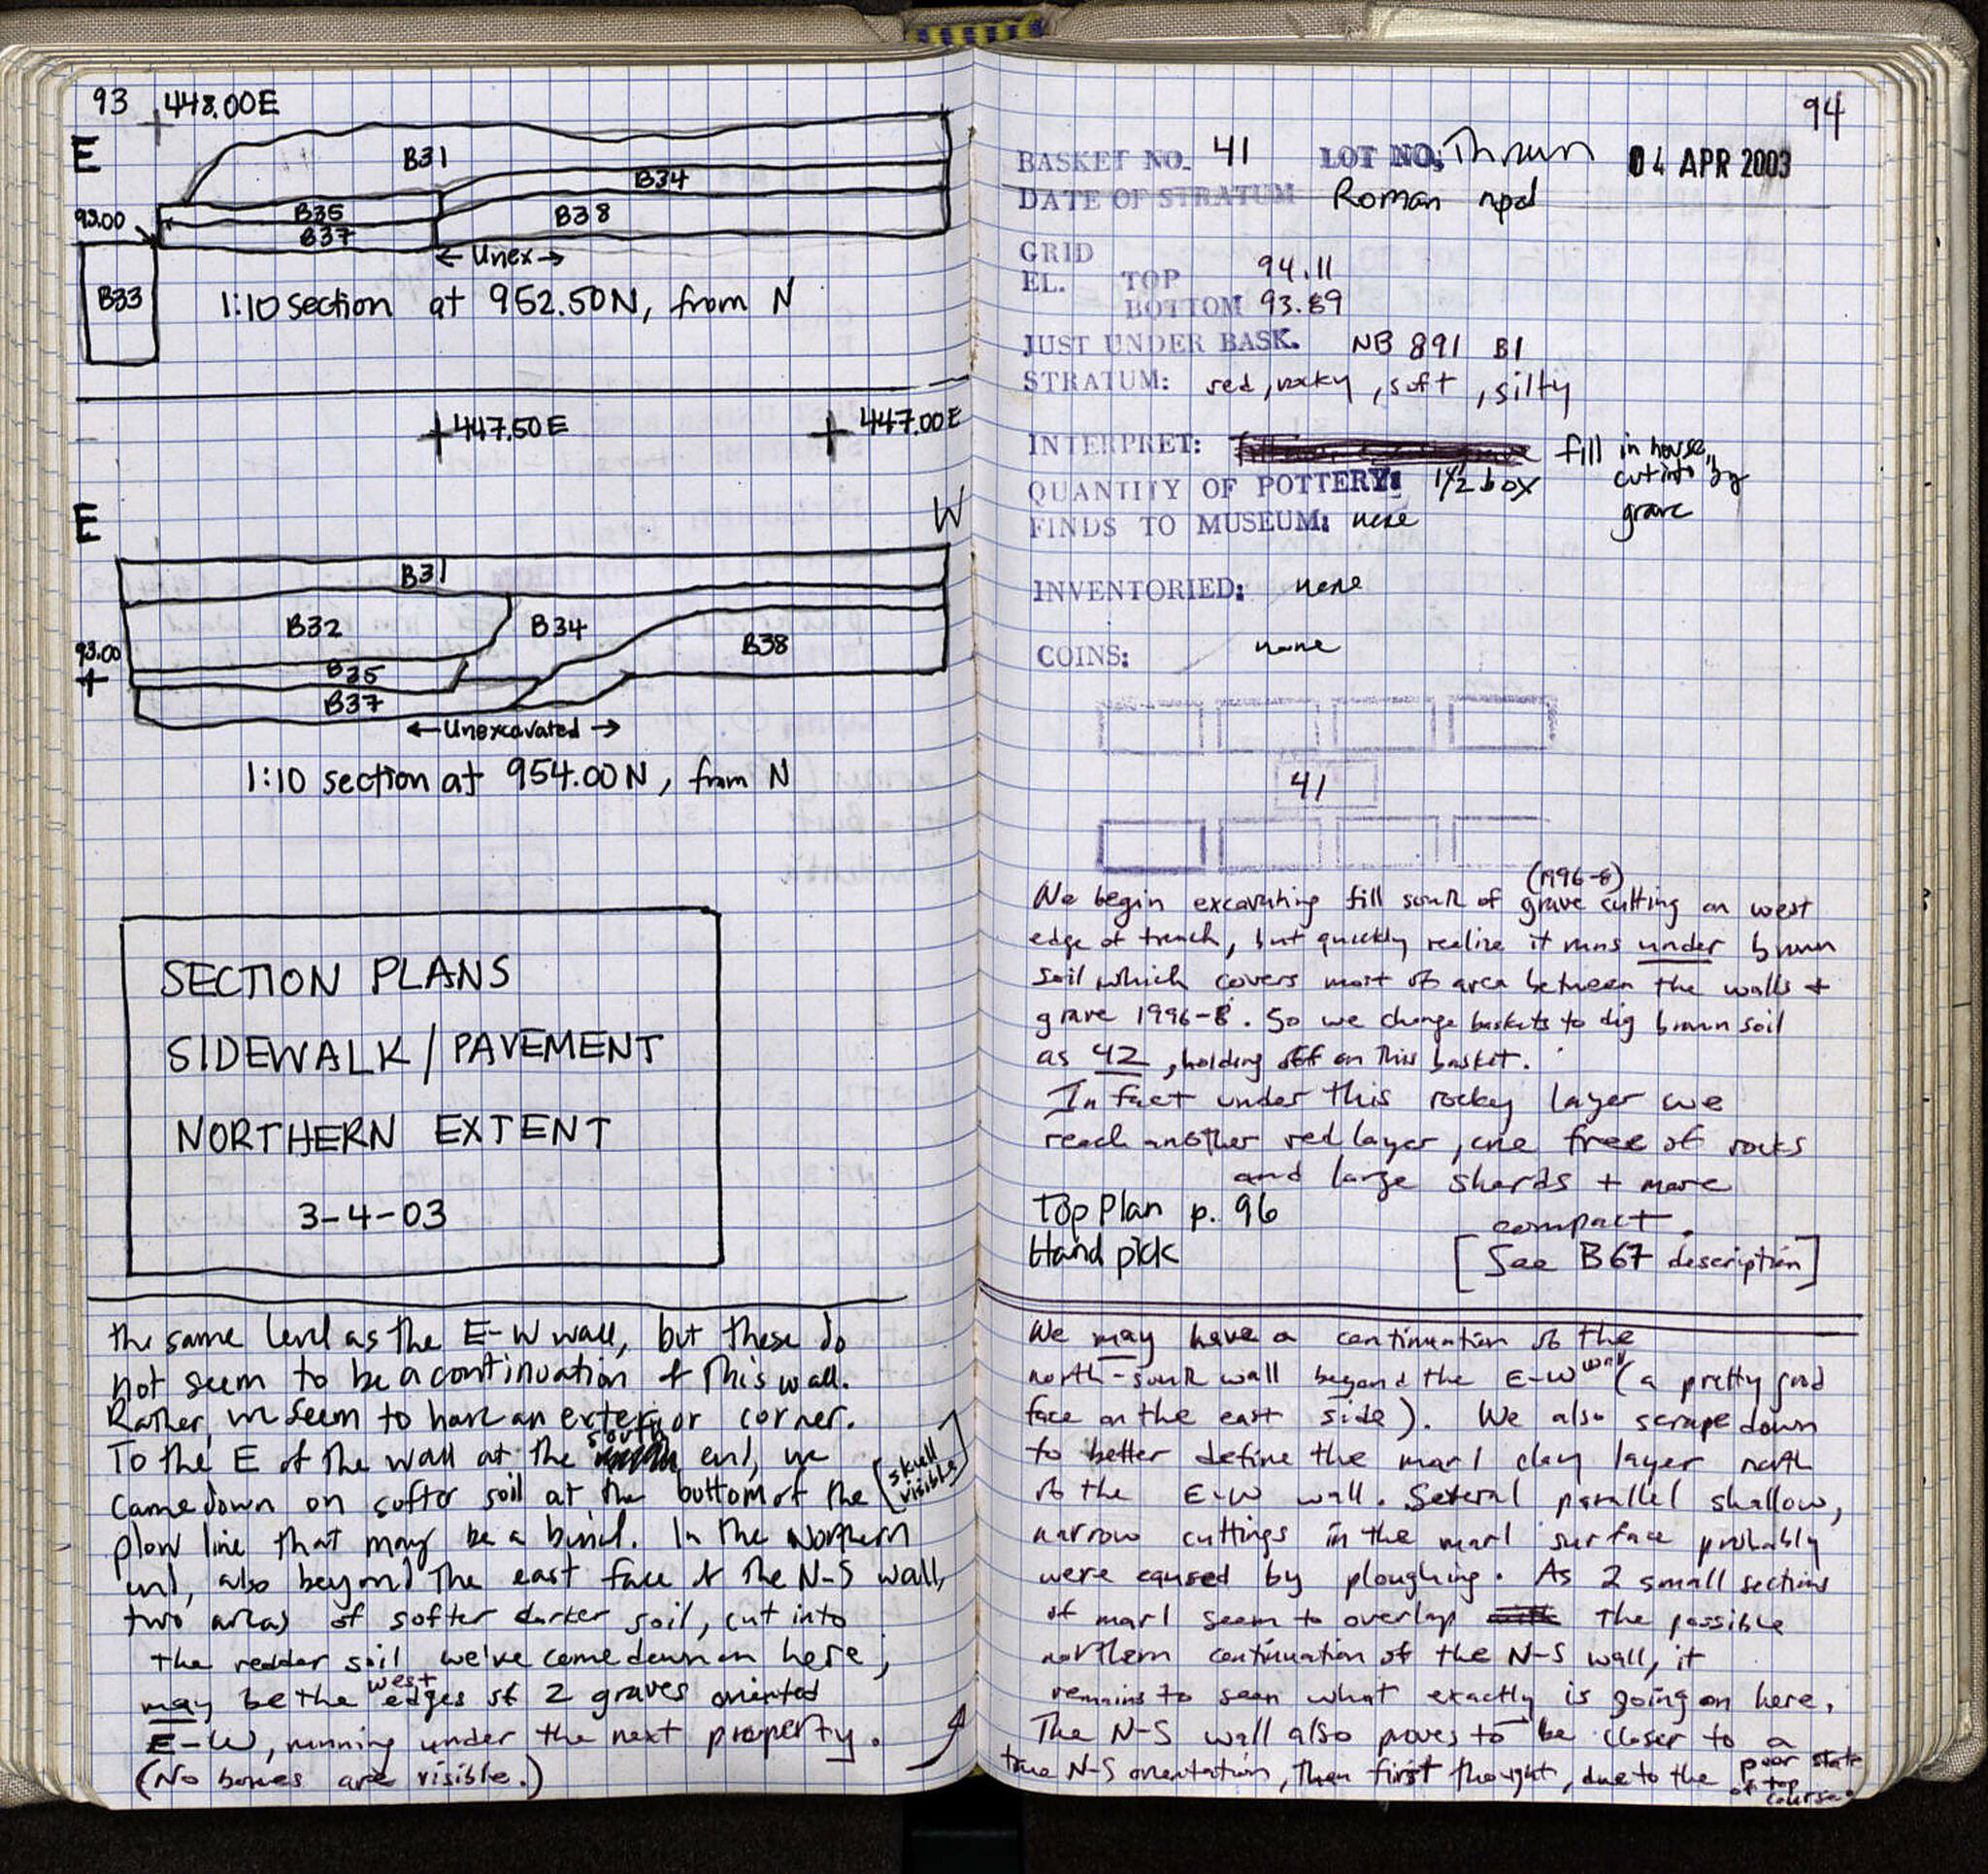 93 448.00E
E
B31
B34
93.00
B35
B38
B37
← Unex →
B33
1:10 section at 952.50N, from N
447.50E
447.00E
E
W
B31
B32
B34
B38
93.00
B35
B37
← Unexcavated →
1:10 section at 954.00N, from N
SECTION PLANS
SIDEWALK / PAVEMENT
NORTHERN EXTENT
3-4-03
the same level as the E-W wall, but these do
not seem to be a continuation of this wall.
Rather, we seem to have an exterior corner.
To the E of the wall at the south end, we
came down on softer soil at the bottom of the [skull visible]
plow line that may be a burial. In the northern
end, also beyond the east face of the N-S wall,
two areas of softer darker soil, cut into
the redder soil we've come down on here,
may be the west edges of 2 graves oriented
E-W, running under the next property.
(No bones are visible.)
94
BASKET NO. 41 LOT NO. Thrown 04 APR 2003
DATE OF STRATUM Roman npd
GRID
EL. TOP 94.11
BOTTOM 93.89
JUST UNDER BASK. NB 891 B1
STRATUM: red, rocky, soft, silty
INTERPRET: fill in house, cut into by grave
QUANTITY OF POTTERY: 1/2 box
FINDS TO MUSEUM: none
INVENTORIED: none
COINS: none
41
We begin excavating fill south of (1996-8) grave cutting on west
edge of trench, but quickly realize it runs under brown
soil which covers most of area between the walls +
grave 1996-8. So we change baskets to dig brown soil
as 42, holding off on this basket.
In fact under this rocky layer we
reach another red layer, one free of rocks
and large sherds + more
compact.
Top Plan p. 96
Hand pick
[See B67 description]
We may have a continuation of the
north-south wall beyond the E-W wall (a pretty good
face on the east side). We also scrape down
to better define the marl clay layer north
of the E-W wall. Several parallel shallow,
narrow cuttings in the marl surface probably
were caused by ploughing. As 2 small sections
of marl seem to overlap the possible
northern continuation of the N-S wall, it
remains to seen what exactly is going on here.
The N-S wall also proves to be closer to a
true N-S orientation, then first thought, due to the poor state
of top course.